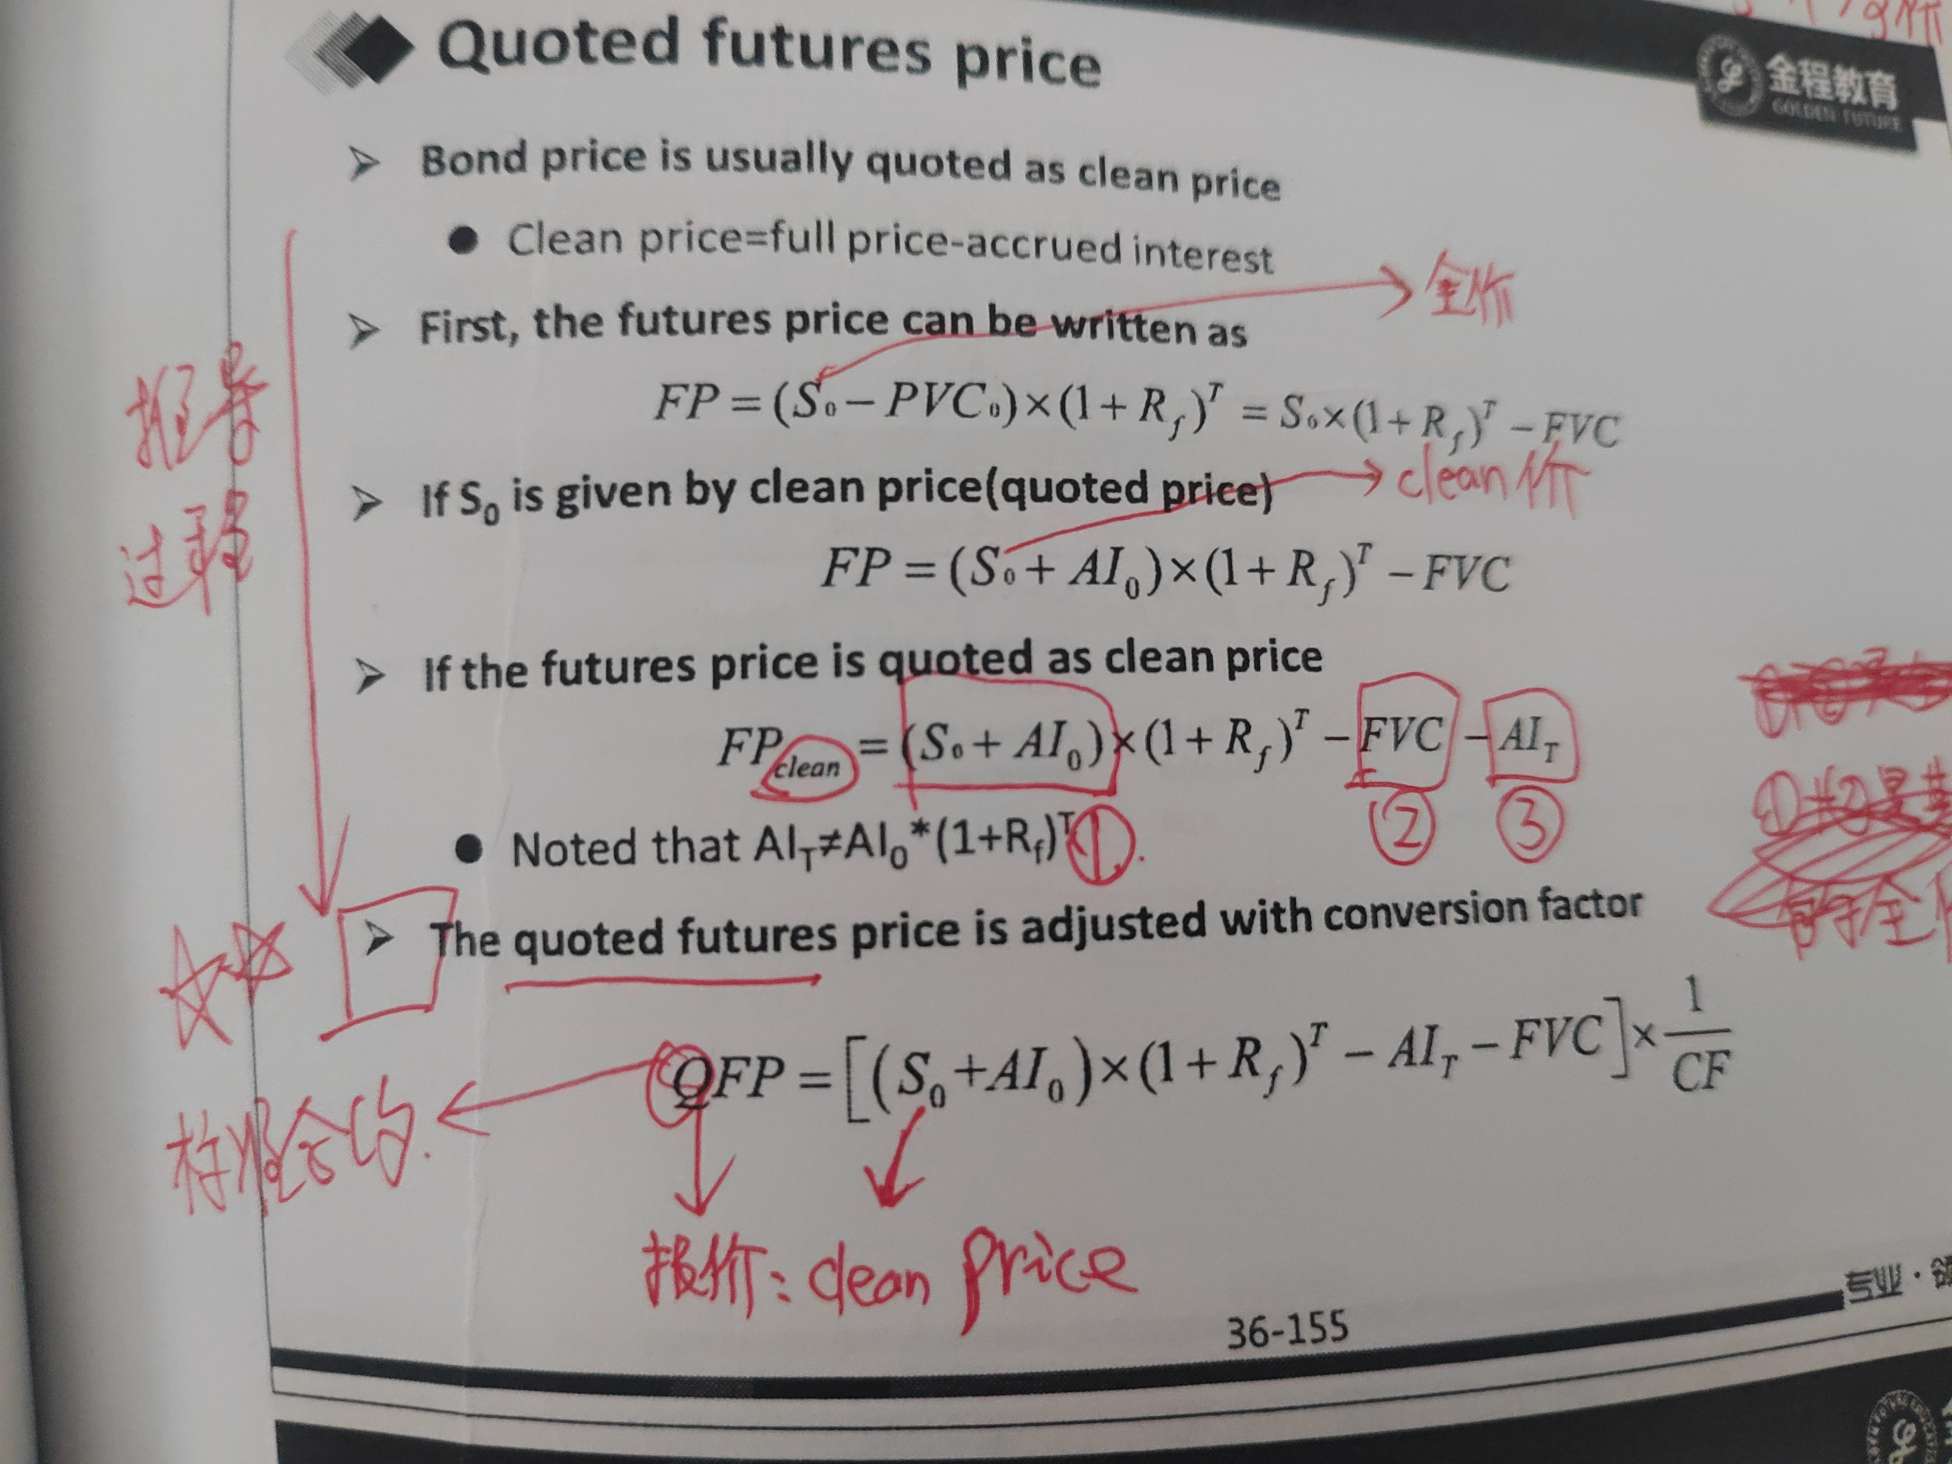 Quoted futures price
金程教育
GOLDEN FUTURE
➢ Bond price is usually quoted as clean price
● Clean price=full price-accrued interest
全价
➢ First, the futures price can be written as
FP = (S₀ − PVC₀)×(1+R_f)^T = S₀×(1+R_f)^T − FVC
推导
过程
➢ If S₀ is given by clean price(quoted price)
clean价
FP = (S₀ + AI₀)×(1+R_f)^T − FVC
➢ If the futures price is quoted as clean price
FP_clean = (S₀ + AI₀)×(1+R_f)^T − FVC − AI_T
① ② ③
● Noted that AI_T≠AI₀*(1+R_f)^T
➢ The quoted futures price is adjusted with conversion factor
QFP = [(S₀+AI₀)×(1+R_f)^T − AI_T − FVC]×1/CF
标准合约.
报价: clean price
36-155
专业·